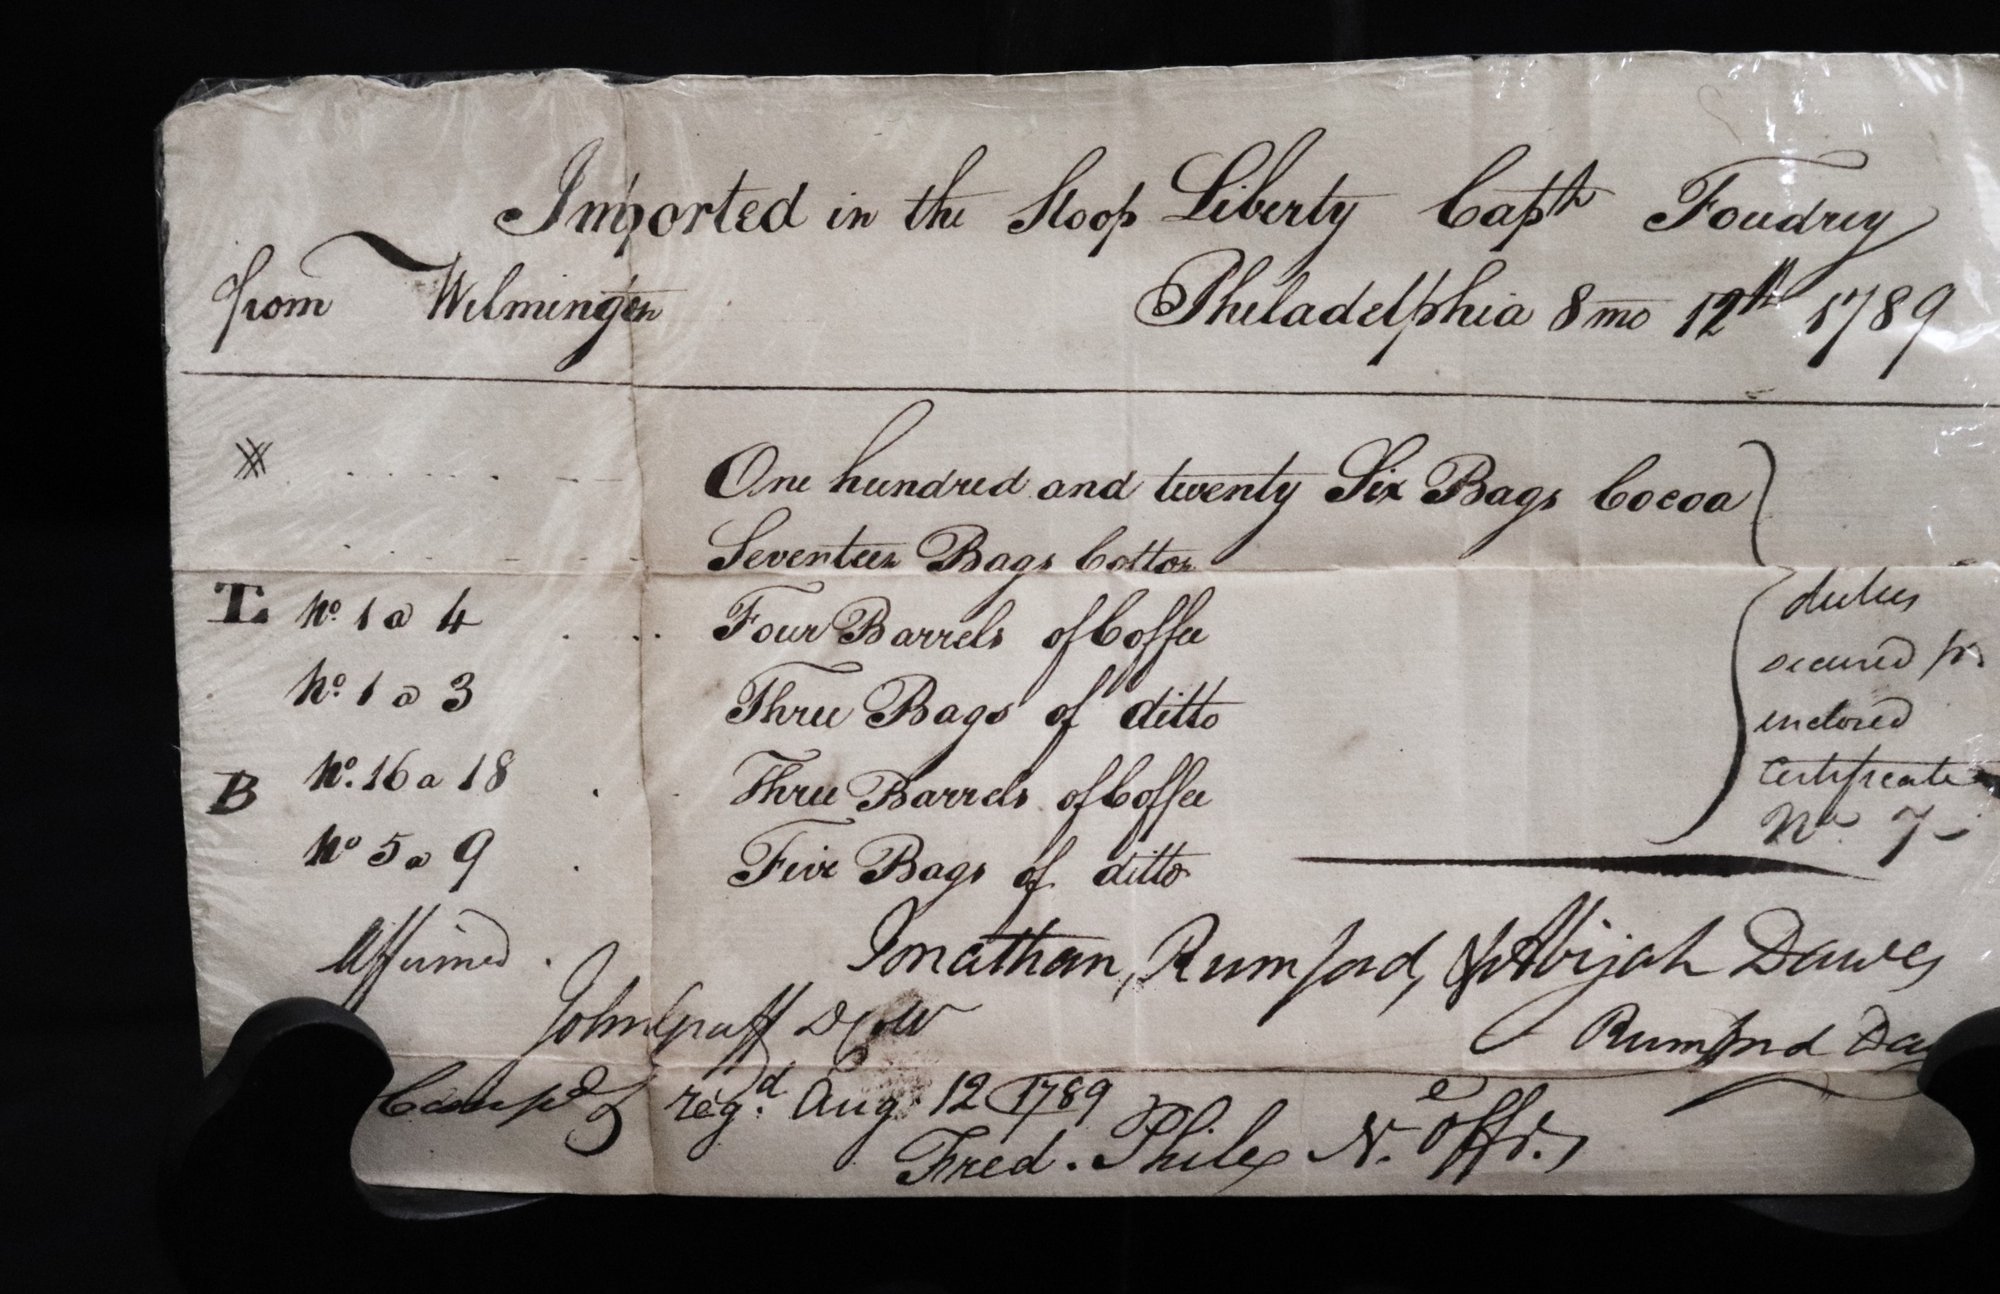 Imported in the Sloop Liberty Captn Foudrey
from Wilmington Philadelphia 8 mo 12th 1789
One hundred and twenty Six Bags Cocoa
Seventeen Bags Cotton
T. No. 1 a 4 Four Barrels of Coffee
No. 1 a 3 Three Bags of ditto
B No. 16 a 18 Three Barrels of Coffee
No 5 a 9 Five Bags of ditto
duties
secured pr
inclosed
Certificate
No. 7
Affirmed. Jonathan, Rumford, & Abijah Dawes
John Graff Rumford
regd. Aug 12 1789
Fred. Phile N. Offr.